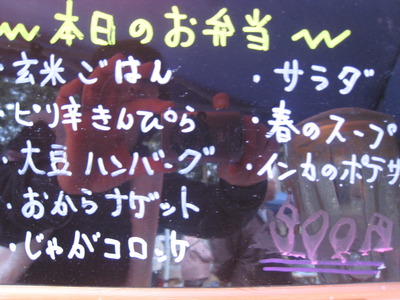 〜本日のお弁当〜
・玄米ごはん
・ピリ辛きんぴら
・大豆ハンバーグ
・おからナゲット
・じゃがコロッケ
・サラダ
・春のスープ
・インカのポテサ
800円